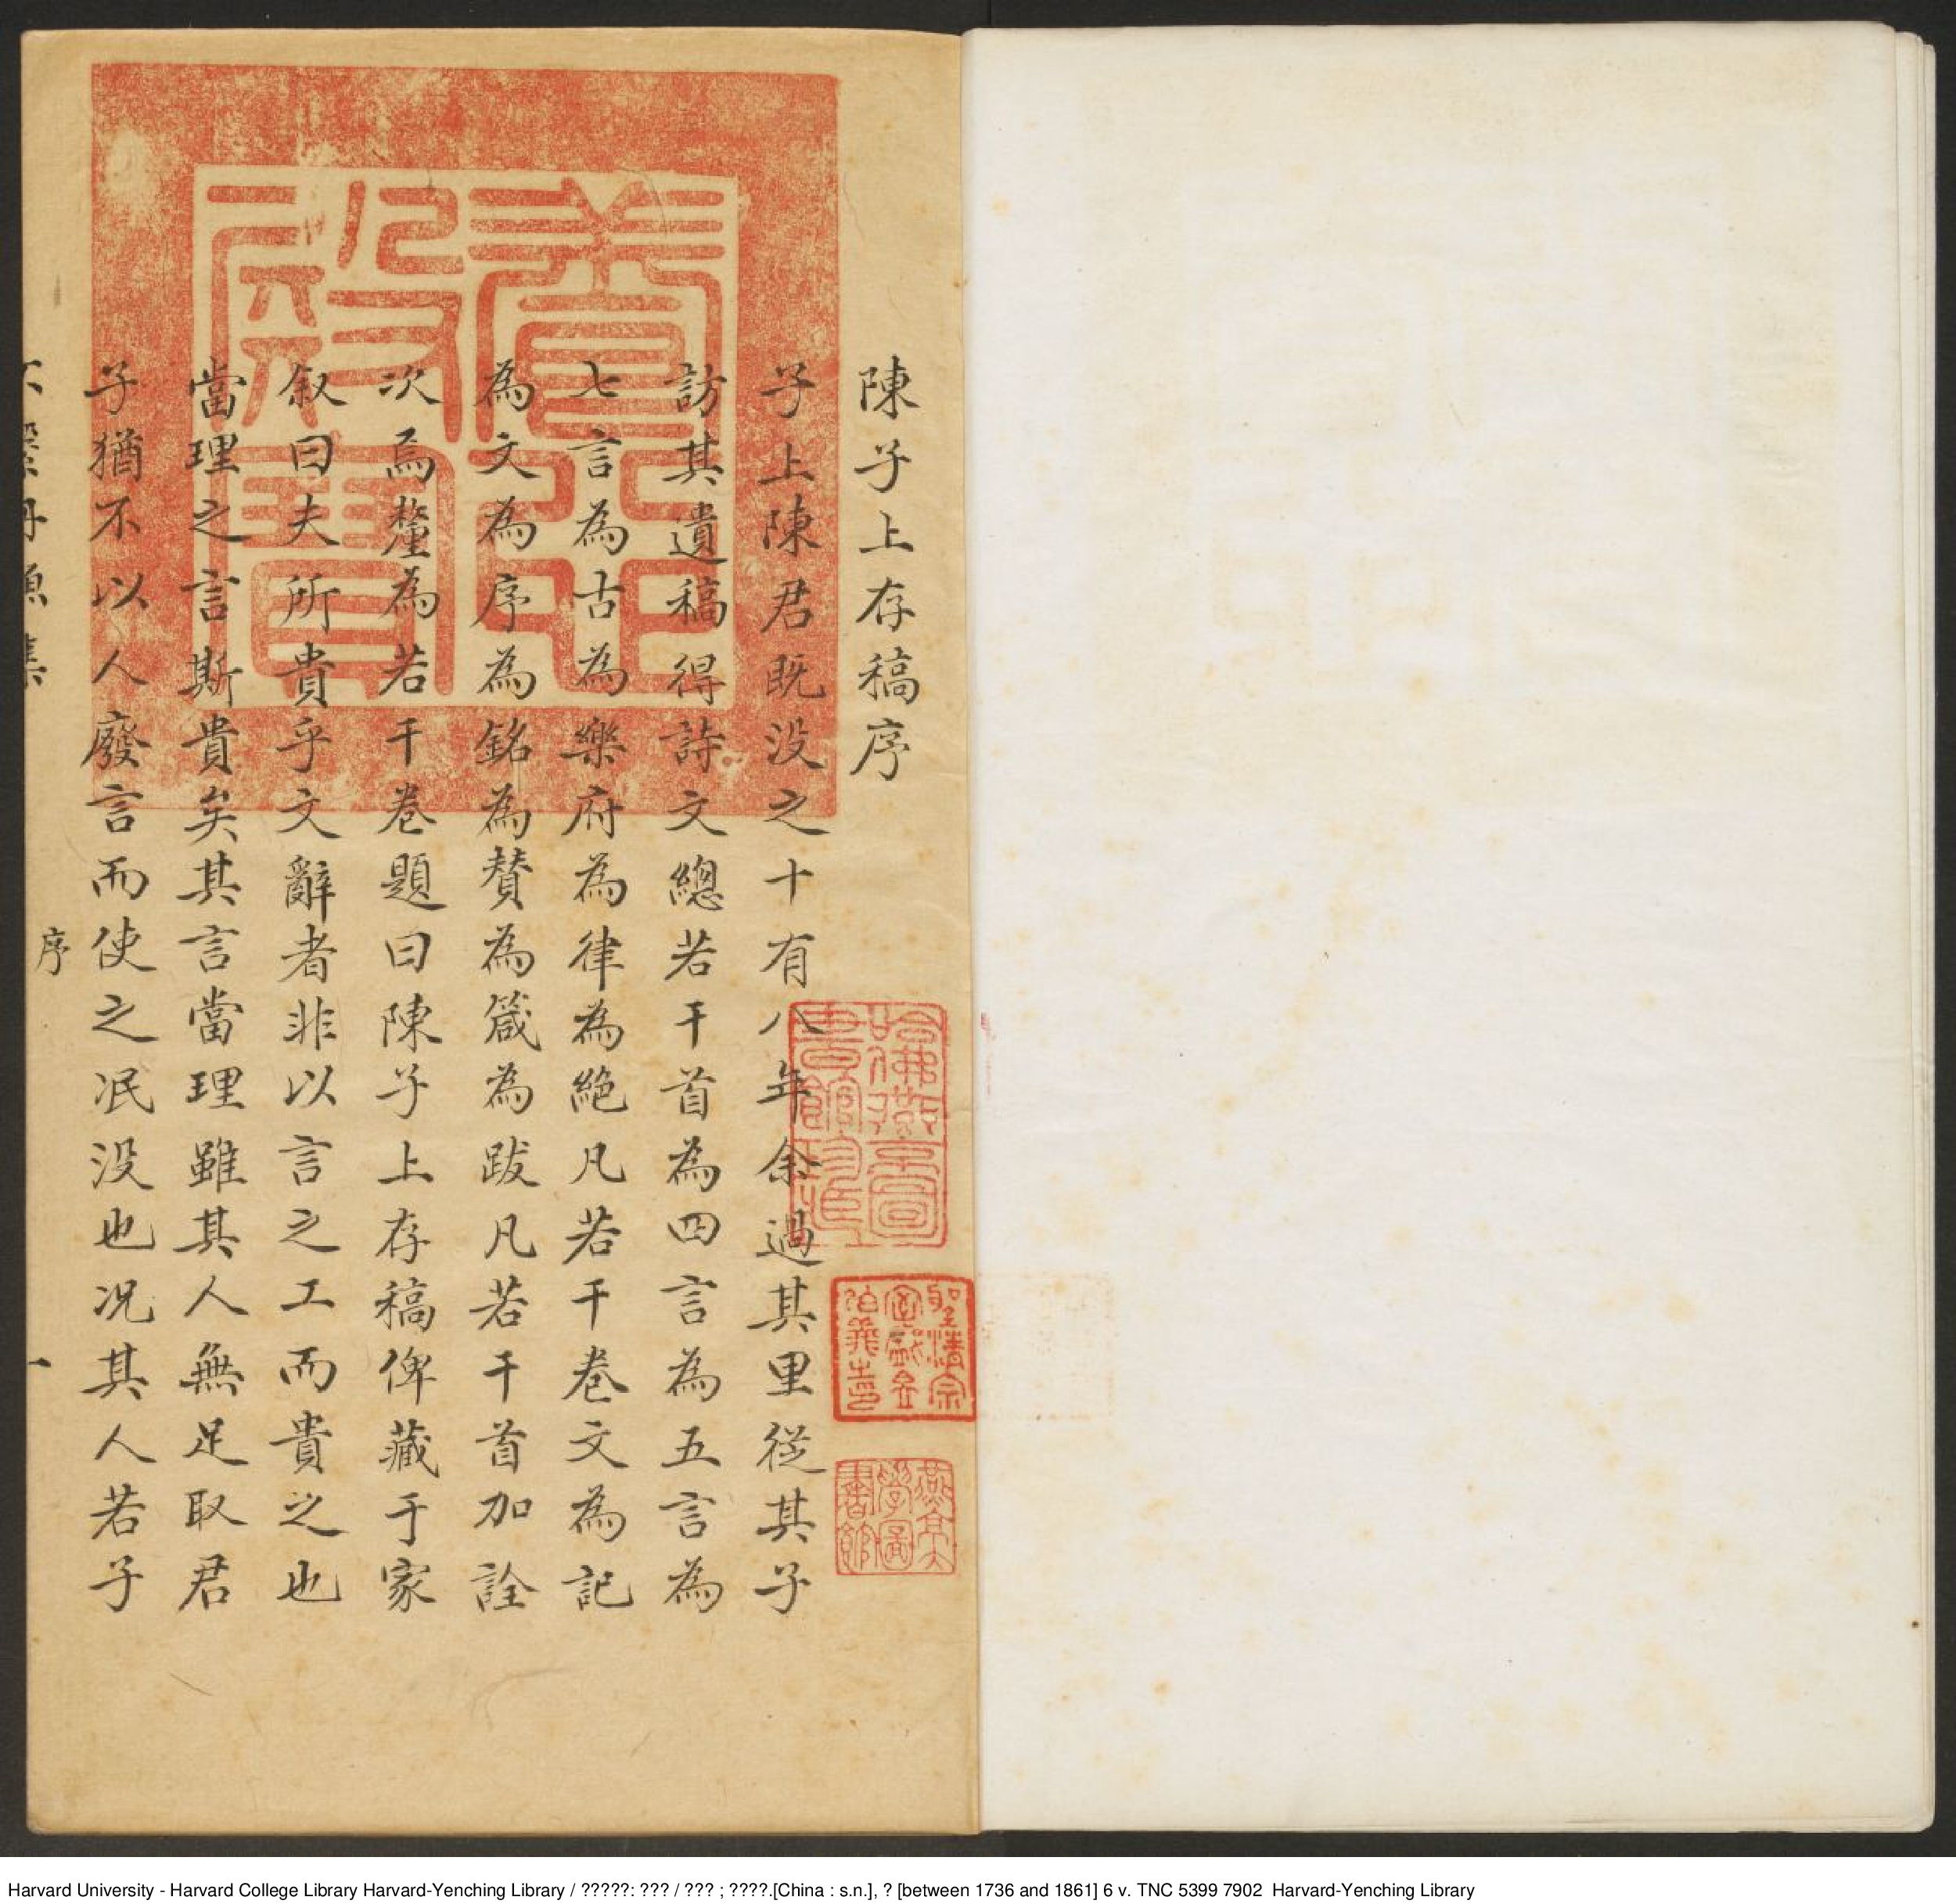 陳子上存稿序
子上陳君既没之十有八年余過其里從其子
訪其遺稿得詩文總若干首為四言為五言為
七言為古為樂府為律為絶凡若干卷文為記
為文為序為銘為賛為箴為跋凡若干首加詮
次焉釐為若干卷題曰陳子上存稿俾藏于家
叙曰夫所貴乎文辭者非以言之工而貴之也
當理之言斯貴矣其言當理雖其人無足取君
子猶不以人廢言而使之泯没也况其人若子
不繫舟漁集
序
一
養心殿寶
哈佛燕京圖書館珍藏
聖清宗室盛昱伯羲之印
燕京大學圖書館
Harvard University - Harvard College Library Harvard-Yenching Library / ?????: ??? / ??? ; ????.[China : s.n.], ? [between 1736 and 1861] 6 v. TNC 5399 7902 Harvard-Yenching Library